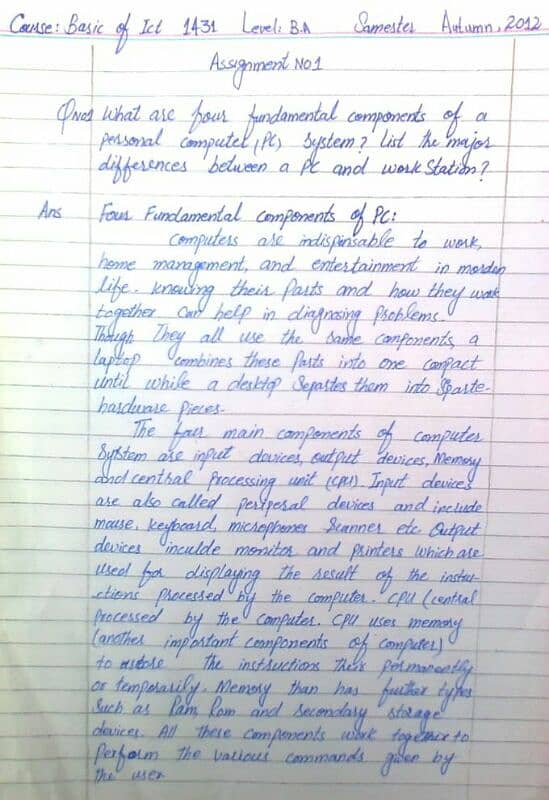 Course: Basic of Ict 1431 Level: B.A Samester Autumn, 2012
Assignment No1
QNo1 What are four fundamental components of a
personal computer (PC) System? List the major
differences between a PC and work Station?
Ans Four Fundamental components of PC:
Computers are indispinsable to work,
home management, and entertainment in morden
life. knowing their Parts and how they work
together can help in diagnosing Problems.
Though They all use the same components, a
laptop combines these Parts into one compact
until while a desktop Separtes them into Sparte-
hardware Pieces.
The four main components of computer
System are input devices, output devices, Memory
and central Processing unit (CPU). Input devices
are also called perperal devices and include
mouse, keyboard, microphones Scanner etc. Output
devices inculde monitor and printers which are
used for displaying the result of the instru-
ctions processed by the computer. CPU (central
Processed by the computer. CPU uses memory
(another important components of computer)
to the instructions permanently
or temporarily. Memory than has further types
Such as Ram Rom and Secondary storage
devices. All these components work together to
Perform the various commands given by
the user